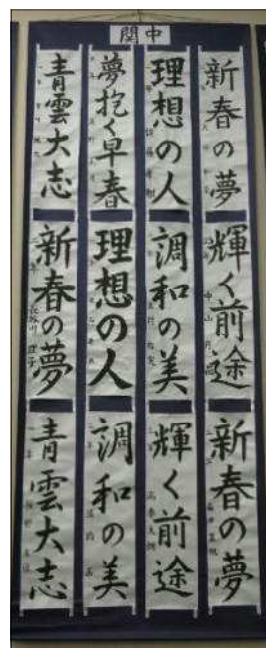 関中
新春の夢
輝く前途
新春の夢
理想の人
調和の美
輝く前途
夢抱く早春
理想の人
調和の美
青雲大志
新春の夢
青雲大志